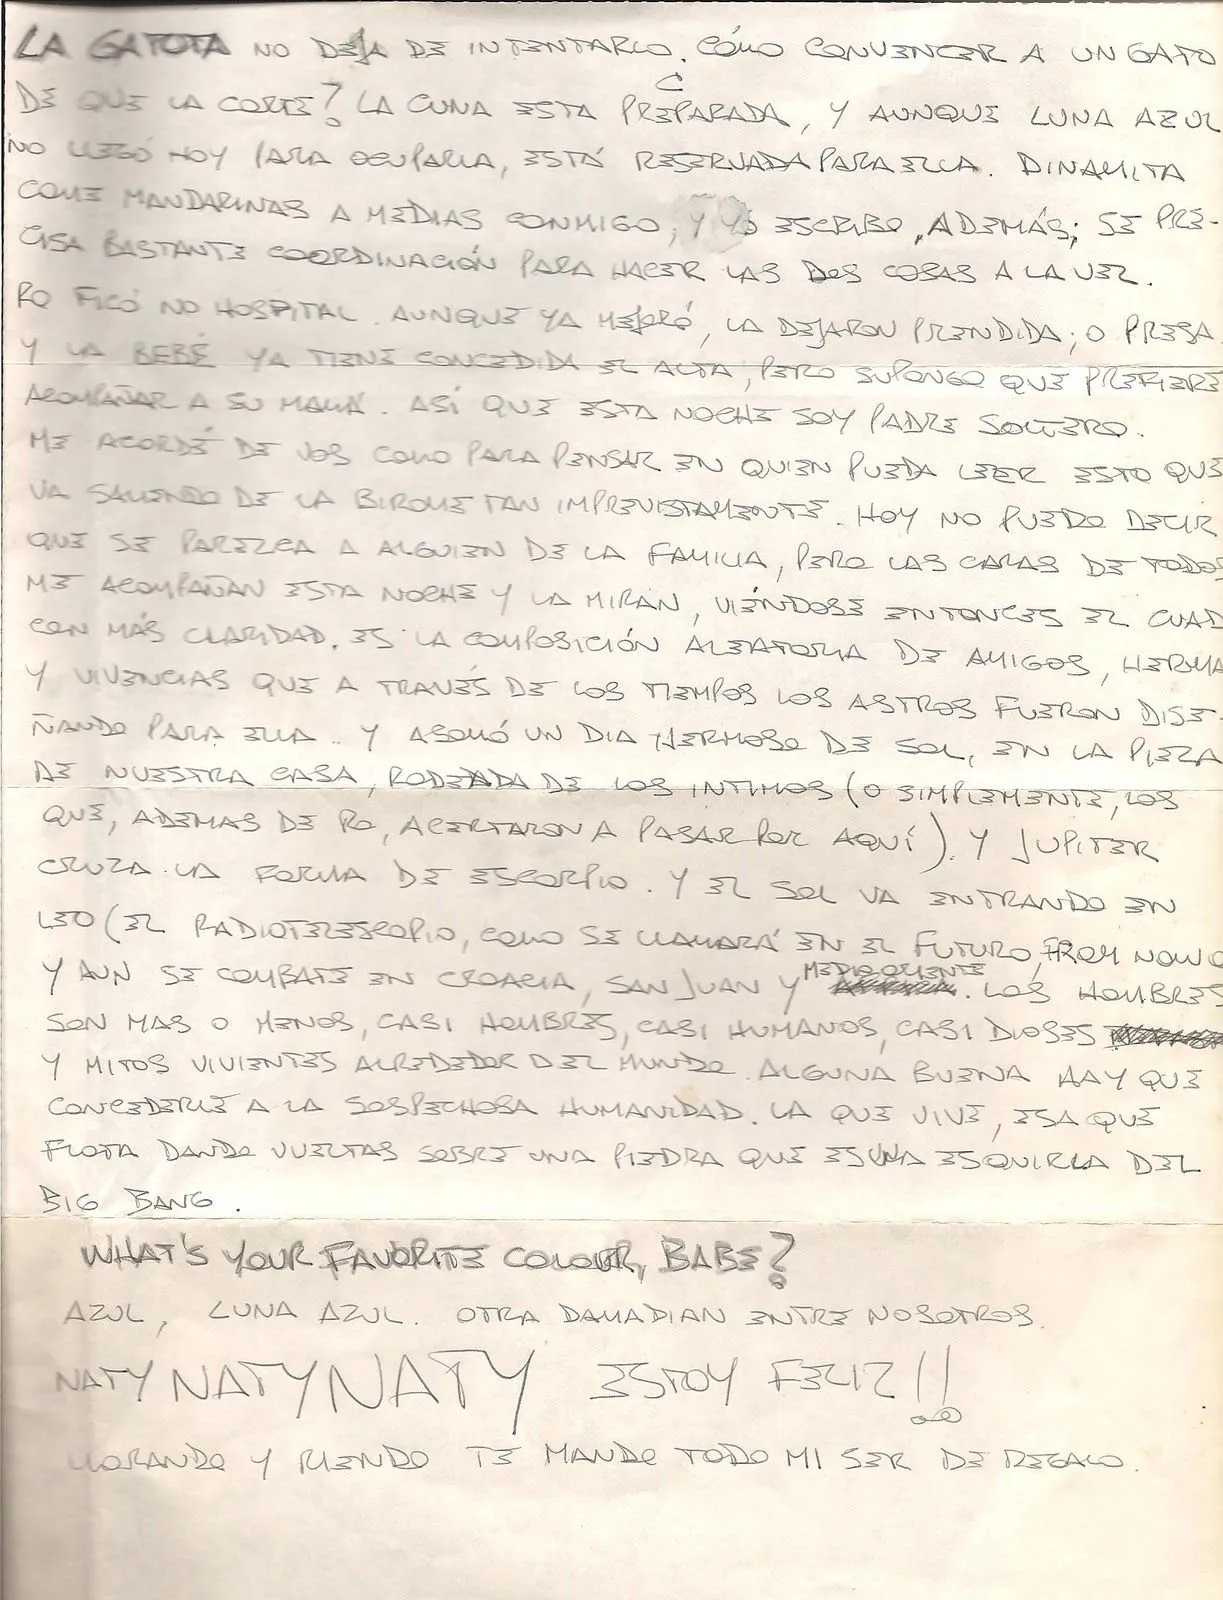 LA GATOTA NO DEJA DE INTENTARLO. CÓMO CONVENCER A UN GATO
DE QUE LA CORTE? LA CUNA ESTA PREPARADA, Y AUNQUE LUNA AZUL
NO LLEGÓ HOY PARA OCUPARLA, ESTÁ RESERVADA PARA ELLA. DINAMITA
COME MANDARINAS A MEDIAS CONMIGO, Y YO ESCRIBO, ADEMÁS; SE PRE-
CISA BASTANTE COORDINACIÓN PARA HACER LAS DOS COSAS A LA VEZ.
RO FICÓ NO HOSPITAL. AUNQUE YA MEJORÓ, LA DEJARON PRENDIDA; O PRESA.
Y LA BEBÉ YA TIENE CONCEDIDA EL ALTA, PERO SUPONGO QUE PREFIERE
ACOMPAÑAR A SU MAMÁ. ASÍ QUE ESTA NOCHE SOY PADRE SOLTERO.
ME ACORDÉ DE VOS COMO PARA PENSAR EN QUIEN PUEDA LEER ESTO QUE
VA SALIENDO DE LA BIROME TAN IMPREVISTAMENTE. HOY NO PUEDO DECIR
QUE SE PAREZCA A ALGUIEN DE LA FAMILIA, PERO LAS CARAS DE TODOS
ME ACOMPAÑAN ESTA NOCHE Y LA MIRAN, VIÉNDOSE ENTONCES EL CUAD
CON MÁS CLARIDAD. ES LA COMPOSICIÓN ALEATORIA DE AMIGOS, HERMA
Y VIVENCIAS QUE A TRAVÉS DE LOS TIEMPOS LOS ASTROS FUERON DISE-
ÑANDO PARA ELLA.. Y ASOMÓ UN DIA HERMOSO DE SOL, EN LA PIEZA
DE NUESTRA CASA, RODEADA DE LOS INTIMOS (O SIMPLEMENTE, LOS
QUE, ADEMAS DE RO, ACERTARON A PASAR POR AQUÍ). Y JUPITER
CRUZA LA FORMA DE ESCORPIO. Y EL SOL VA ENTRANDO EN
LEO (EL RADIOTELESCOPIO, COMO SE LLAMARÁ EN EL FUTURO, FROM NOW O
Y AUN SE COMBATE EN CROACIA, SAN JUAN Y MEDIO ORIENTE. LOS HOMBRES
SON MAS O MENOS, CASI HOMBRES, CASI HUMANOS, CASI DIOSES
Y MITOS VIVIENTES ALREDEDOR DEL MUNDO. ALGUNA BUENA HAY QUE
CONCEDERLE A LA SOSPECHOSA HUMANIDAD. LA QUE VIVE, ESA QUE
FLOTA DANDO VUELTAS SOBRE UNA PIEDRA QUE ES UNA ESQUIRLA DEL
BIG BANG.
WHAT'S YOUR FAVORITE COLOUR, BABE?
AZUL, LUNA AZUL. OTRA DAMADIAN ENTRE NOSOTROS.
NATY NATY NATY ESTOY FELIZ!!
LLORANDO Y RIENDO TE MANDO TODO MI SER DE REGALO.